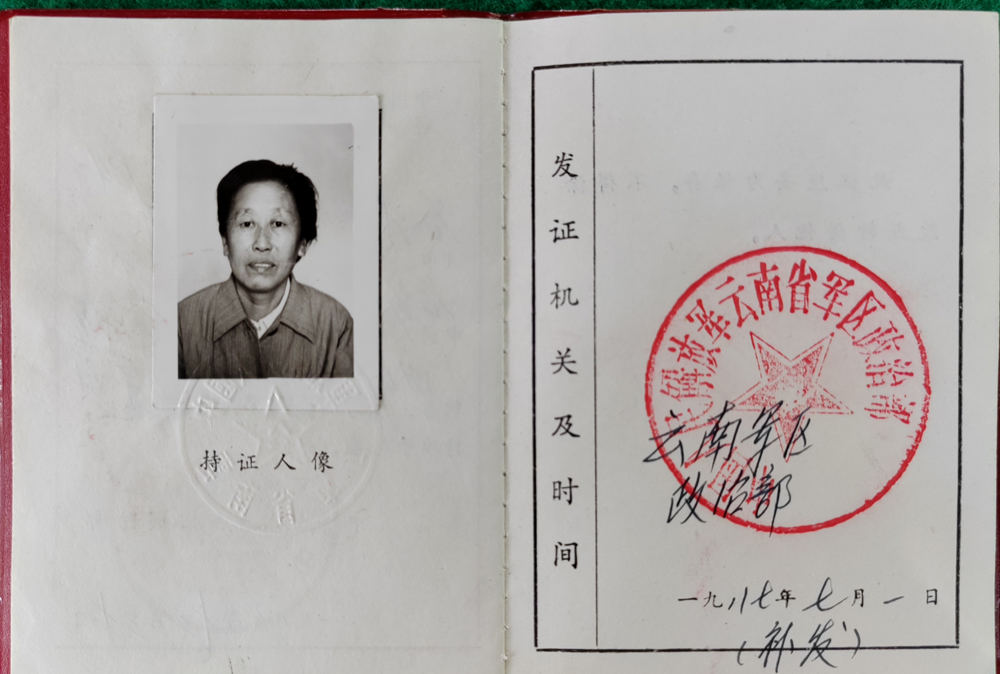 持证人像
发证机关及时间
解放军云南省军区政治部
云南军区
政治部
一九八七年七月一日
(补发)